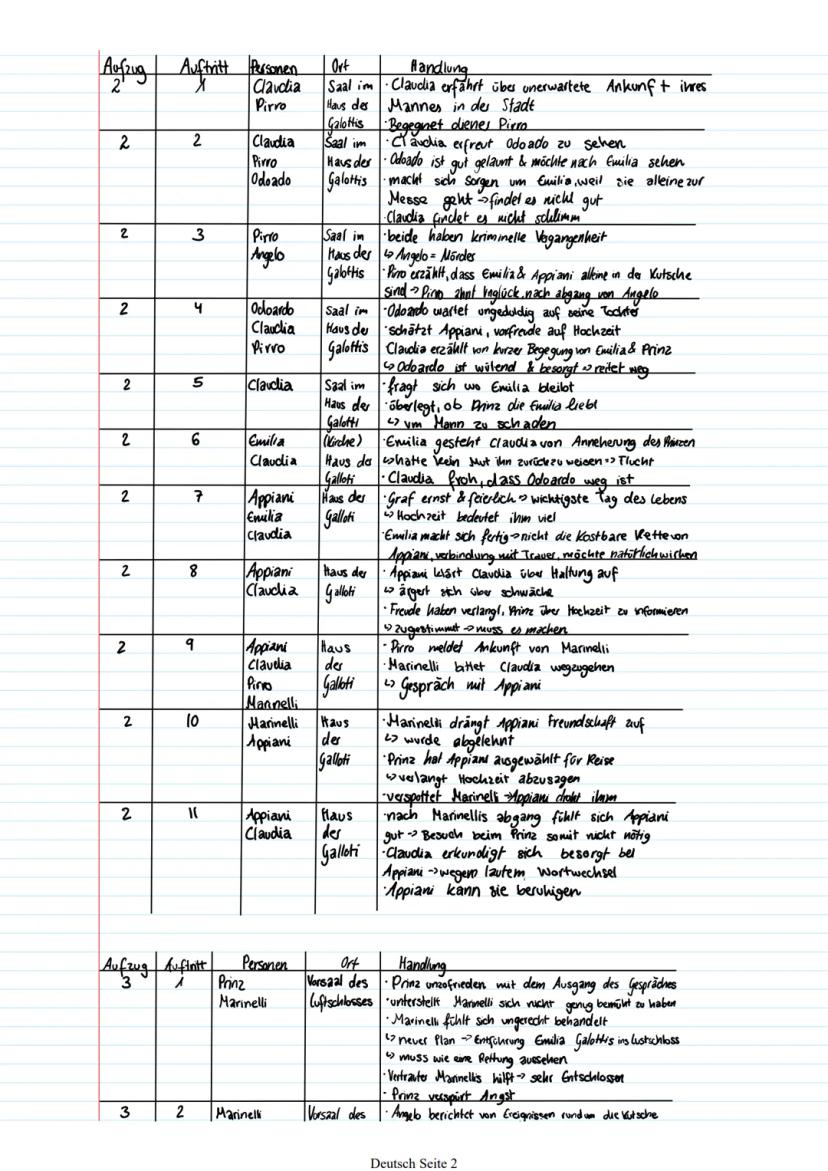 Aufzug Auftritt Personen Ort Handlung
2 1 Claudia Saal im · Claudia erfährt über unerwartete Ankunft ihres
Pirro Haus der Mannes in der Stadt
Galottis · Begegnet diener Pirro
2 2 Claudia Saal im · Claudia erfreut Odoado zu sehen
Pirro Haus der · Odoado ist gut gelaunt & möchte nach Emilia sehen
Odoado Galottis · macht sich Sorgen um Emilia, weil sie alleine zur
Messe geht → findet es nicht gut
· Claudia findet es nicht schlimm
2 3 Pirro Saal im · beide haben kriminelle Vegangenheit
Angelo Haus der ↳ Angelo = Mörder
Galottis · Pirro erzählt, dass Emilia & Appiani alleine in der Kutsche
sind → Pirro ahnt Unglück, nach abgang von Angelo
2 4 Odoardo Saal im · Odoardo wartet ungeduldig auf seine Tochter
Claudia Haus der · schätzt Appiani, vorfreude auf Hochzeit
Pirro Galottis Claudia erzählt von kurzer Begegung von Emilia & Prinz
↳ Odoardo ist wütend & besorgt → reitet weg
2 5 Claudia Saal im · fragt sich wo Emilia bleibt
Haus der · überlegt, ob Prinz die Emilia liebt
Galotti ↳ um Mann zu schaden
2 6 Emilia (Kirche) · Emilia gesteht Claudia von Anneherung des Prinzen
Claudia Haus der ↳ hatte kein Mut ihn zurückzuweisen => Flucht
Galloti · Claudia froh, dass Odoardo weg ist
2 7 Appiani Haus der · Graf ernst & feierlich → wichtigste Tag des Lebens
Emilia Galloti ↳ Hochzeit bedeutet ihm viel
Claudia · Emilia macht sich fertig → nicht die Kostbare Kette von
Appiani, verbindung mit Trauer, möchte natürlich wirken
2 8 Appiani Haus der · Appiani klärt Claudia über Haltung auf
Claudia Galloti ↳ ärgert sich über schwäche
· Freude haben verlangt, Prinz über Hochzeit zu informieren
↳ zugestimmt → muss es machen
2 9 Appiani Haus · Pirro meldet Ankunft von Marinelli
Claudia der · Marinelli bittet Claudia wegzugehen
Pirro Galloti ↳ Gespräch mit Appiani
Marinelli
2 10 Marinelli Haus · Marinelli drängt Appiani Freundschaft auf
Appiani der ↳ wurde abgelehnt
Galloti · Prinz hat Appiani ausgewählt für Reise
↳ verlangt Hochzeit abzusagen
· verspottet Marinelli → Appiani droht ihm
2 11 Appiani Haus · nach Marinellis abgang fühlt sich Appiani
Claudia der gut → Besuch beim Prinz somit nicht nötig
Galloti · Claudia erkundigt sich besorgt bei
Appiani → wegem lautem Wortwechsel
· Appiani kann sie beruhigen
Aufzug Auftritt Personen Ort Handlung
3 1 Prinz Vorsaal des · Prinz unzofrieden mit dem Ausgang des Gespräches
Marinelli Luftschlosses · unterstellt Marinelli sich nicht genug bemüht zu haben
· Marinelli fühlt sich ungerecht behandelt
↳ neuer Plan → Entführung Emilia Galottis ins Lustschloss
↳ muss wie eine Rettung aussehen
· Vertrauter Marinellis hilft → sehr Entschlossen
· Prinz verspürt Angst
3 2 Marinelli Vorsaal des · Angelo berichtet von Ereignissen rund um die Kutsche
Deutsch Seite 2